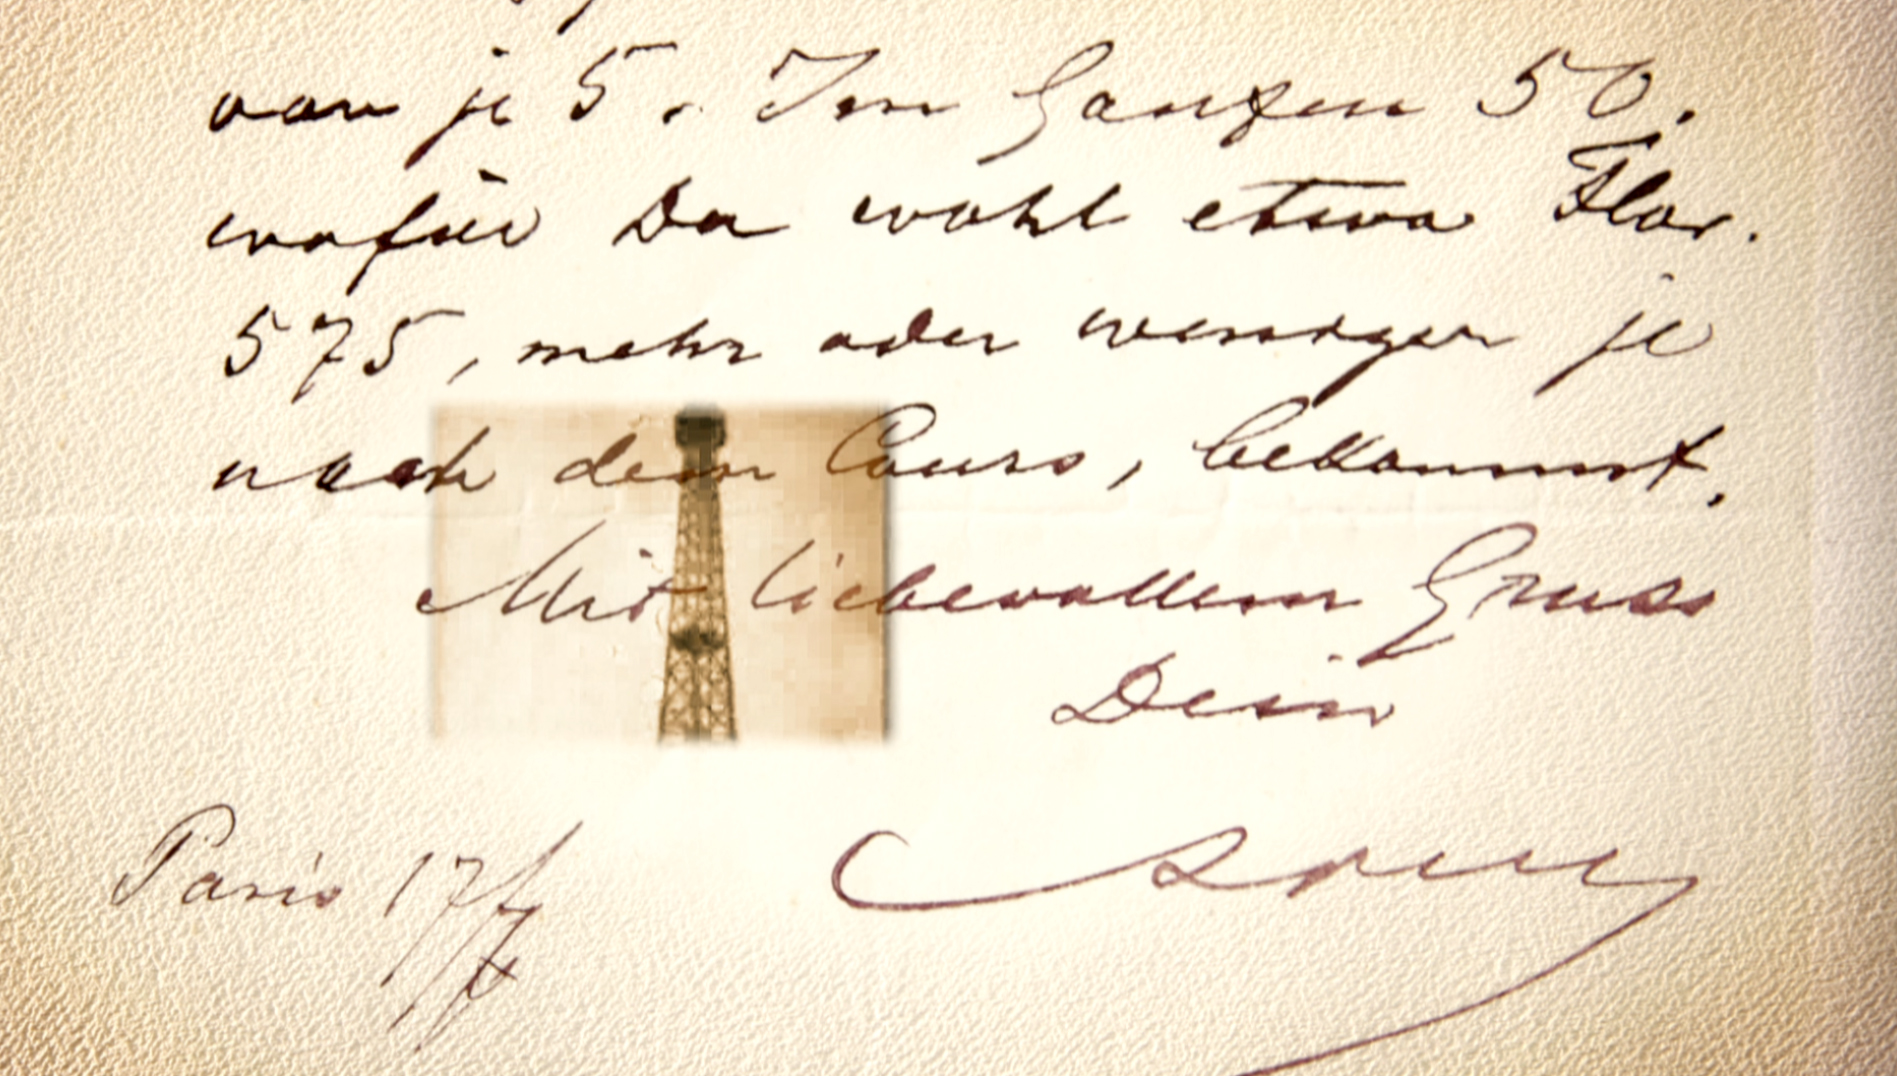 von je 5. Im Ganzen 50.
wofür Du wohl etwa Flor.
575, mehr oder weniger je
nach dem Cours, bekommst.
Mit liebevollem Gruss
Dein
Paris 17/